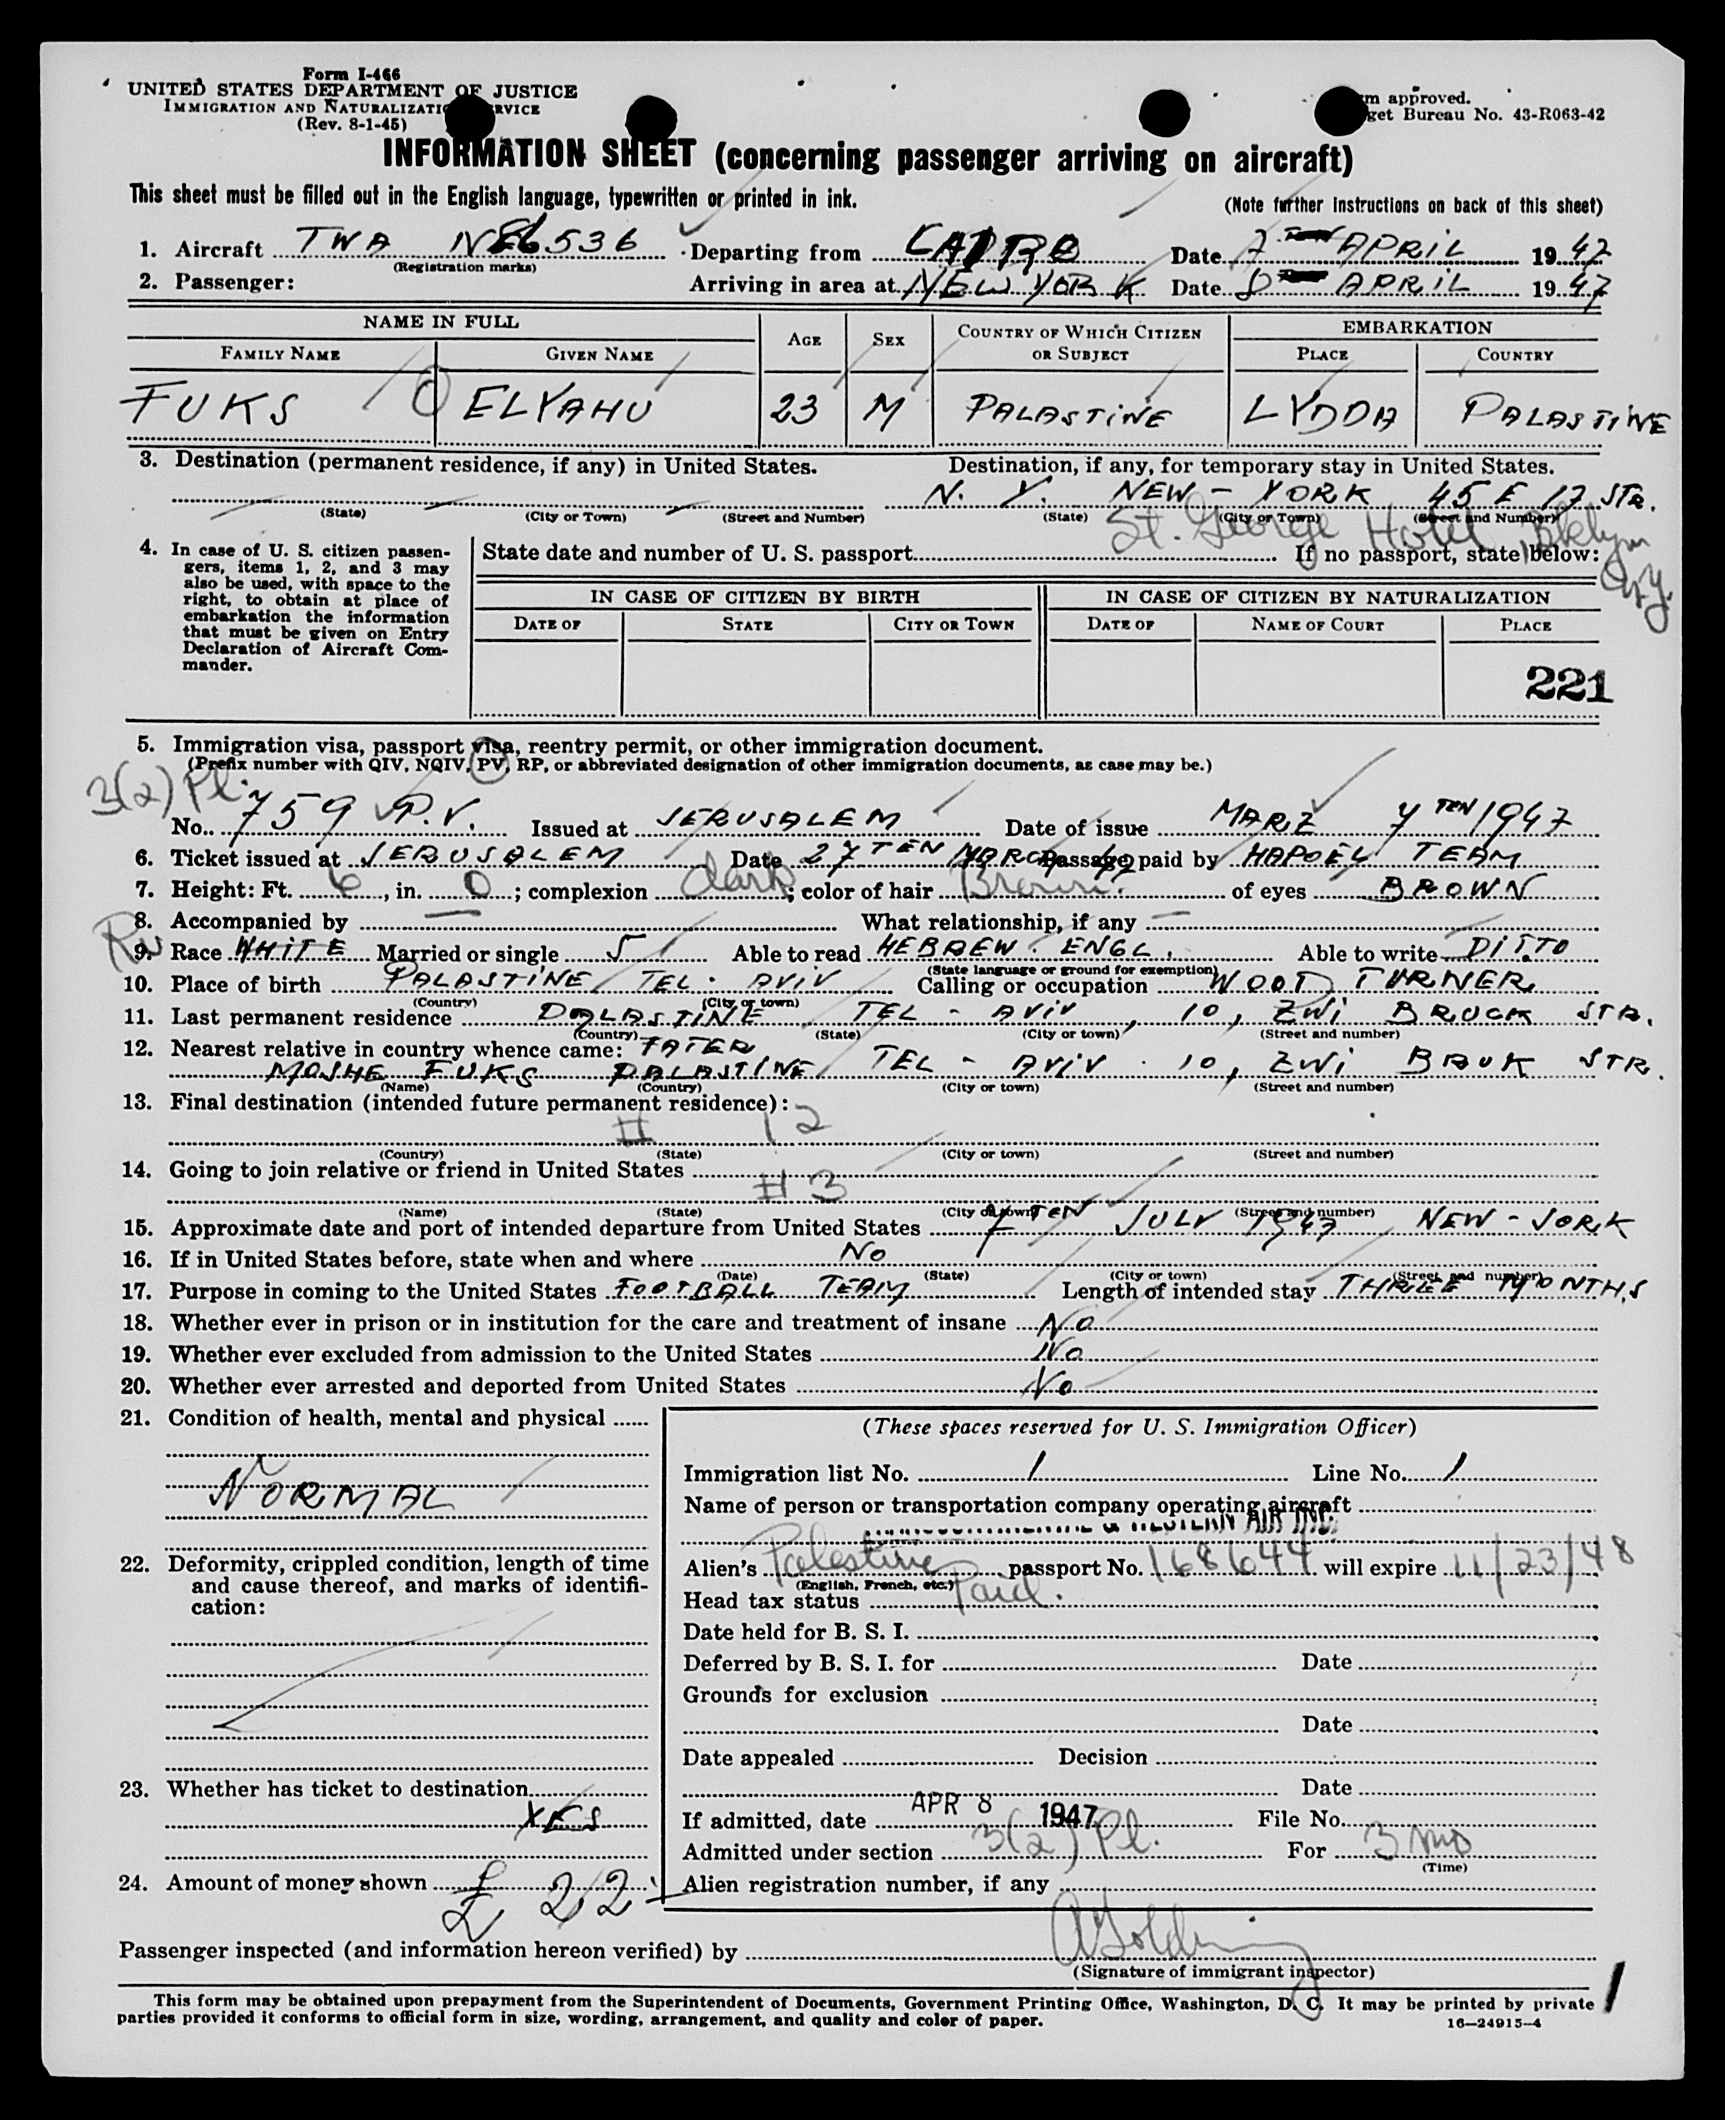 Form I-466
UNITED STATES DEPARTMENT OF JUSTICE
IMMIGRATION AND NATURALIZATION SERVICE
(Rev. 8-1-45)
m approved.
get Bureau No. 43-R063-42
INFORMATION SHEET (concerning passenger arriving on aircraft)
This sheet must be filled out in the English language, typewritten or printed in ink.
(Note further instructions on back of this sheet)
1. Aircraft TWA N86536 Departing from CAIRO Date 7 APRIL 1947
(Registration marks)
2. Passenger: Arriving in area at NEW YORK Date 8 APRIL 1947
NAME IN FULL AGE SEX COUNTRY OF WHICH CITIZEN OR SUBJECT EMBARKATION
FAMILY NAME GIVEN NAME PLACE COUNTRY
FUKS ELYAHU 23 M PALASTINE LYDDA PALASTINE
3. Destination (permanent residence, if any) in United States. Destination, if any, for temporary stay in United States.
N. Y. NEW - YORK 45 E 17 STR.
(State) (City or Town) (Street and Number) (State) (City or Town) (Street and Number)
St. George Hotel, Bklyn
4. In case of U. S. citizen passengers, items 1, 2, and 3 may also be used, with space to the right, to obtain at place of embarkation the information that must be given on Entry Declaration of Aircraft Commander.
State date and number of U. S. passport If no passport, state below:
IN CASE OF CITIZEN BY BIRTH IN CASE OF CITIZEN BY NATURALIZATION
DATE OF STATE CITY OR TOWN DATE OF NAME OF COURT PLACE
221
5. Immigration visa, passport visa, reentry permit, or other immigration document.
(Prefix number with QIV, NQIV, PV, RP, or abbreviated designation of other immigration documents, as case may be.)
3(2) Pl.
No. 759 P.V. Issued at JERUSALEM Date of issue MARZ 4 TEN 1947
6. Ticket issued at JERUSALEM Date 27 TEN MARCH 47 Passage paid by HAPOEL TEAM
7. Height: Ft. 6, in. 0; complexion dark; color of hair Brown. of eyes BROWN
8. Accompanied by — What relationship, if any —
9. Race WHITE Married or single S Able to read HEBREW. ENGL. Able to write DITTO
(State language or ground for exemption)
10. Place of birth PALASTINE TEL. AVIV Calling or occupation WOOD TURNER
(Country) (City or town)
11. Last permanent residence PALASTINE TEL - AVIV, 10, ZWI BROCK STR.
(Country) (State) (City or town) (Street and number)
12. Nearest relative in country whence came: FATER
MOSHE FUKS PALASTINE TEL - AVIV. 10, ZWI BRUK STR.
(Name) (Country) (City or town) (Street and number)
13. Final destination (intended future permanent residence):
# 12
(Country) (State) (City or town) (Street and number)
14. Going to join relative or friend in United States
# 3
(Name) (State) (City or town) (Street and number)
15. Approximate date and port of intended departure from United States 7 TEN JULY 1947 NEW - JORK
16. If in United States before, state when and where No
(Date) (State) (City or town) (Street and number)
17. Purpose in coming to the United States FOOTBALL TEAM Length of intended stay THREE MONTHS
18. Whether ever in prison or in institution for the care and treatment of insane No
19. Whether ever excluded from admission to the United States No
20. Whether ever arrested and deported from United States No
21. Condition of health, mental and physical
NORMAL
22. Deformity, crippled condition, length of time and cause thereof, and marks of identification:
23. Whether has ticket to destination
YES
24. Amount of money shown £ 22
(These spaces reserved for U. S. Immigration Officer)
Immigration list No. 1 Line No. 1
Name of person or transportation company operating aircraft
AIR INC.
Alien's Palestine passport No. 168644 will expire 11/23/48
(English, French, etc.)
Head tax status Paid.
Date held for B. S. I.
Deferred by B. S. I. for Date
Grounds for exclusion
Date
Date appealed Decision
Date
If admitted, date APR 8 1947 File No.
Admitted under section 3(2) Pl. For 3 mo
(Time)
Alien registration number, if any
Passenger inspected (and information hereon verified) by
(Signature of immigrant inspector)
This form may be obtained upon prepayment from the Superintendent of Documents, Government Printing Office, Washington, D. C. It may be printed by private
parties provided it conforms to official form in size, wording, arrangement, and quality and color of paper.
16—24915-4